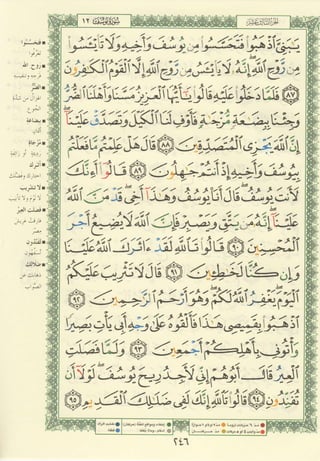 الجزء الثالث عشر
سورة يوسف ١٢
يَٰبَنِىَّ ٱذْهَبُوا۟ فَتَحَسَّسُوا۟ مِن يُوسُفَ وَأَخِيهِ وَلَا تَا۟يْـَٔسُوا۟
مِن رَّوْحِ ٱللَّهِ إِنَّهُۥ لَا يَا۟يْـَٔسُ مِن رَّوْحِ ٱللَّهِ إِلَّا ٱلْقَوْمُ ٱلْكَٰفِرُونَ
٨٧ فَلَمَّا دَخَلُوا۟ عَلَيْهِ قَالُوا۟ يَٰٓأَيُّهَا ٱلْعَزِيزُ مَسَّنَا وَأَهْلَنَا ٱلضُّرُّ
وَجِئْنَا بِبِضَٰعَةٍ مُّزْجَىٰةٍ فَأَوْفِ لَنَا ٱلْكَيْلَ وَتَصَدَّقْ عَلَيْنَآ
إِنَّ ٱللَّهَ يَجْزِى ٱلْمُتَصَدِّقِينَ ٨٨ قَالَ هَلْ عَلِمْتُم مَّا فَعَلْتُم
بِيُوسُفَ وَأَخِيهِ إِذْ أَنتُمْ جَٰهِلُونَ ٨٩ قَالُوٓا۟ أَءِنَّكَ
لَأَنتَ يُوسُفُ قَالَ أَنَا۠ يُوسُفُ وَهَٰذَآ أَخِى قَدْ مَنَّ ٱللَّهُ
عَلَيْنَآ إِنَّهُۥ مَن يَتَّقِ وَيَصْبِرْ فَإِنَّ ٱللَّهَ لَا يُضِيعُ أَجْرَ
ٱلْمُحْسِنِينَ ٩٠ قَالُوا۟ تَٱللَّهِ لَقَدْ ءَاثَرَكَ ٱللَّهُ عَلَيْنَا
وَإِن كُنَّا لَخَٰطِـِٔينَ ٩١ قَالَ لَا تَثْرِيبَ عَلَيْكُمُ
ٱلْيَوْمَ يَغْفِرُ ٱللَّهُ لَكُمْ وَهُوَ أَرْحَمُ ٱلرَّٰحِمِينَ ٩٢
ٱذْهَبُوا۟ بِقَمِيصِى هَٰذَا فَأَلْقُوهُ عَلَىٰ وَجْهِ أَبِى يَأْتِ بَصِيرًا
وَأْتُونِى بِأَهْلِكُمْ أَجْمَعِينَ ٩٣ وَلَمَّا فَصَلَتِ
ٱلْعِيرُ قَالَ أَبُوهُمْ إِنِّى لَأَجِدُ رِيحَ يُوسُفَ لَوْلَآ أَن
تُفَنِّدُونِ ٩٤ قَالُوا۟ تَٱللَّهِ إِنَّكَ لَفِى ضَلَٰلِكَ ٱلْقَدِيمِ ٩٥
فتحسسوا
تعرّفوا
روح الله
الضر
بضاعة
مزجاة
آثرك
لا تثريب
فصلت العير
تفندون
ضلالك
٢٤٦